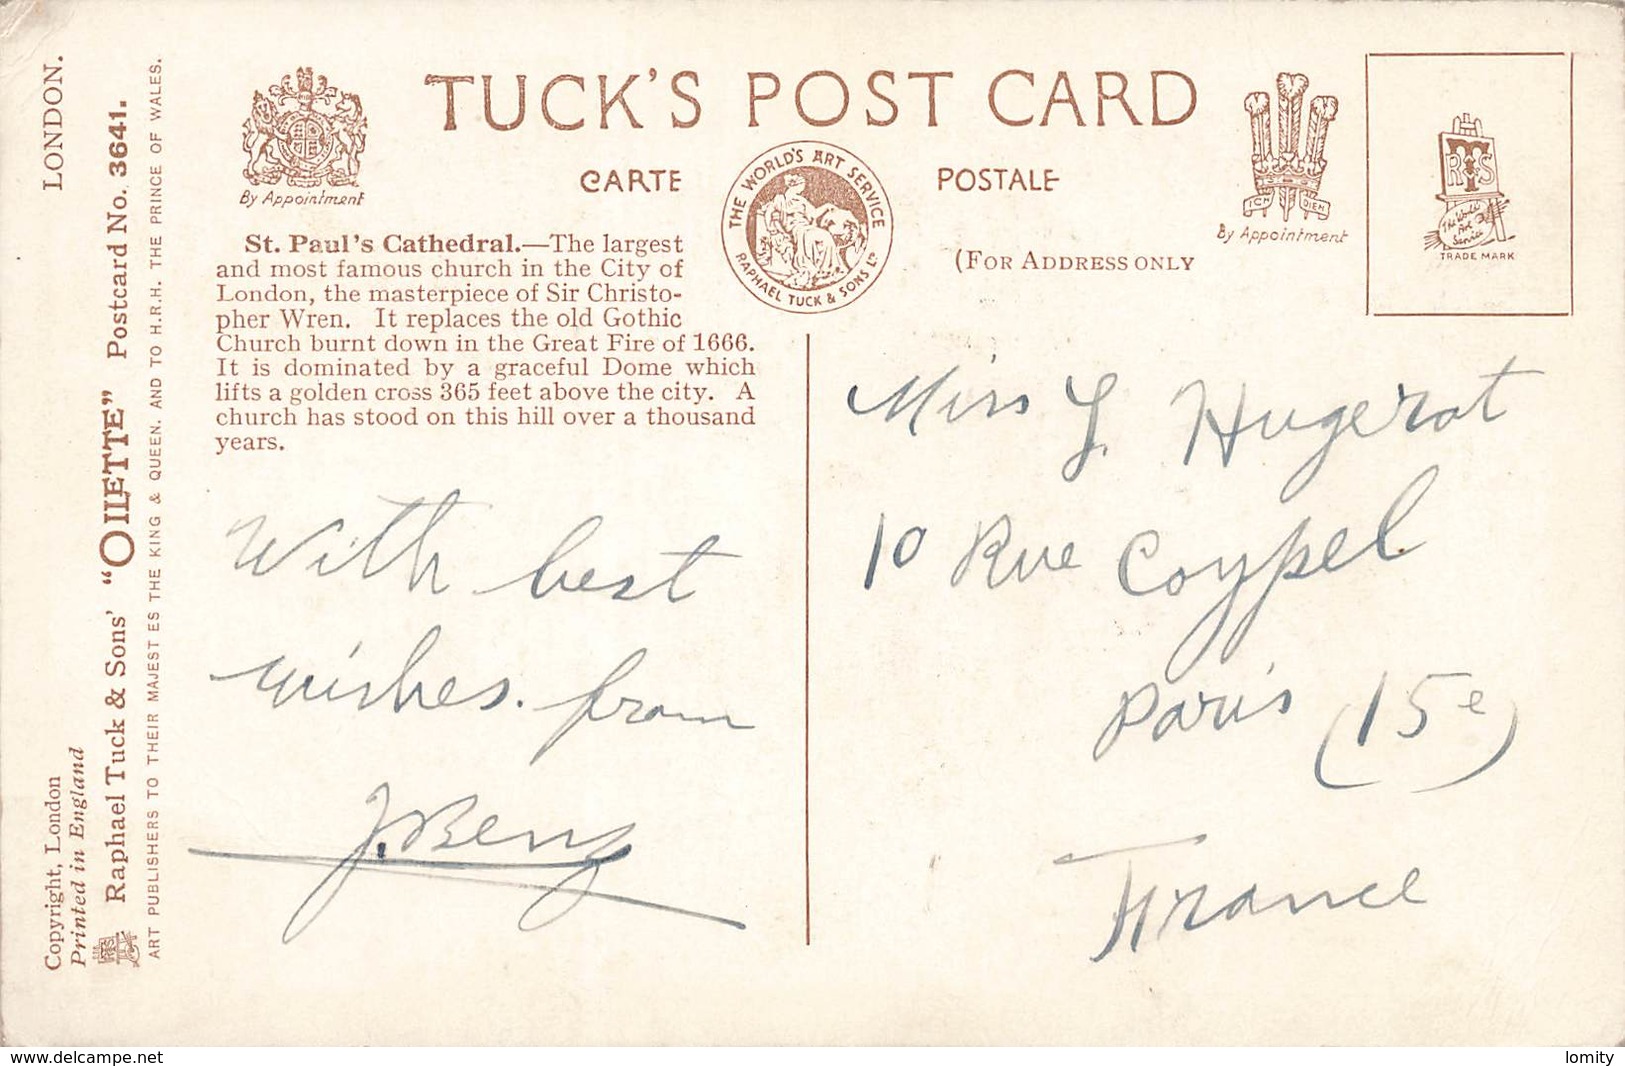 TUCK'S POST CARD
CARTE POSTALE
By Appointment
THE WORLD'S ART SERVICE
RAPHAEL TUCK & SONS LD
ICH DIEN
By Appointment
(FOR ADDRESS ONLY
RTS
The World's Art Service
TRADE MARK
LONDON.
Raphael Tuck & Sons' "OILETTE" Postcard No. 3641.
ART PUBLISHERS TO THEIR MAJESTIES THE KING & QUEEN, AND TO H.R.H. THE PRINCE OF WALES.
Copyright, London
Printed in England
St. Paul's Cathedral.—The largest
and most famous church in the City of
London, the masterpiece of Sir Christo-
pher Wren. It replaces the old Gothic
Church burnt down in the Great Fire of 1666.
It is dominated by a graceful Dome which
lifts a golden cross 365 feet above the city. A
church has stood on this hill over a thousand
years.
With best
wishes. from
J. Beng
Miss Y. Hugerot
10 Rue Coypel
Paris (15e)
France
www.delcampe.net
lomity